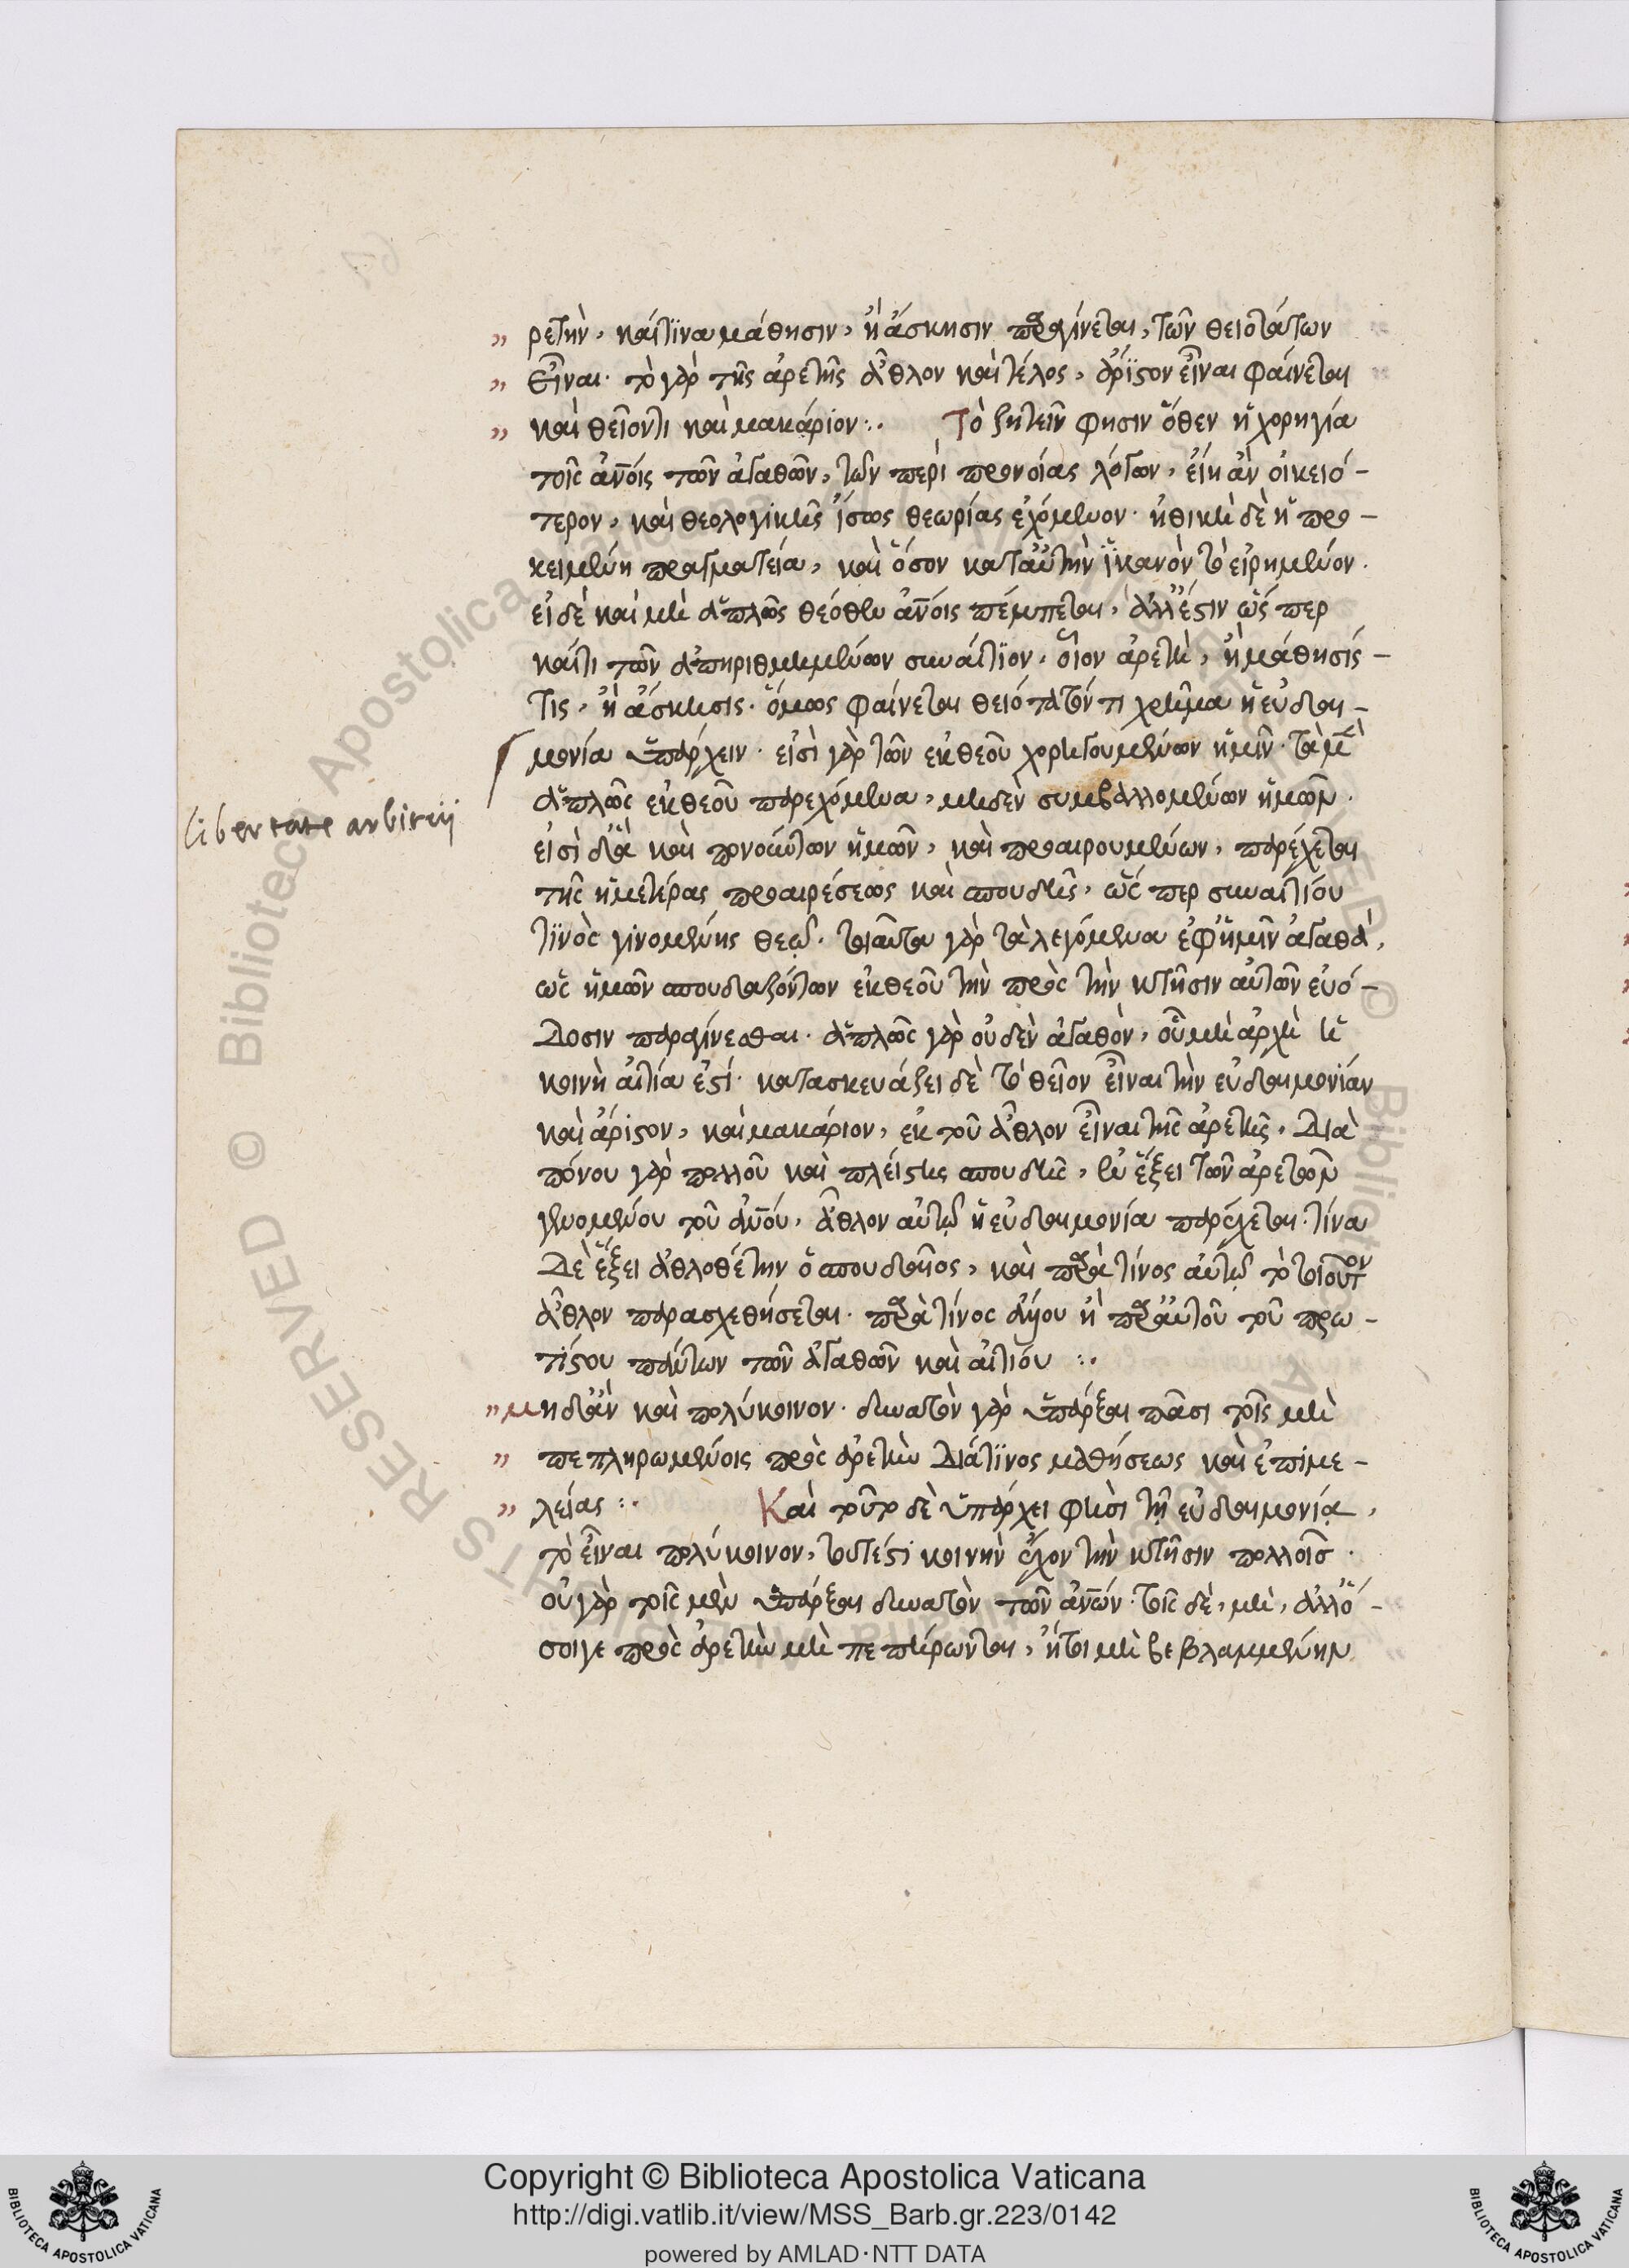 ρετὴν, καί τινα μάθησιν, ἢ ἄσκησιν παραγίνεται, τῶν θειοτάτων
εἶναι· τὸ γὰρ τῆς ἀρετῆς ἆθλον καὶ τέλος, ἄριστον εἶναι φαίνεται
καὶ θεῖόν τι καὶ μακάριον:. Τὸ ζητεῖν φησιν ὅθεν ἡ χορηγία
τοῖς ἀν̅οις τῶν ἀγαθῶν, τῶν περὶ προνοίας λόγων, εἴη ἂν οἰκειό-
τερον, καὶ θεολογικῆς ἴσως θεωρίας ἐχόμενον· ἠθικὴ δὲ ἡ προ-
κειμένη πραγματεία, καὶ ὅσον κατ' αὐτὴν ἱκανὸν τὸ εἰρημένον.
εἰ δὲ καὶ μὴ ἁπλῶς θεόθεν ἀν̅οις πέμπεται, ἀλλ' ἔστιν ὥσπερ
καί τι τῶν ἀπηριθμημένων συναίτιον, οἷον ἀρετὴ, ἢ μάθησίς
τις, ἢ ἄσκησις· ὅμως φαίνεται θειότατόν τι χρῆμα ἡ εὐδαι-
μονία ὑπάρχειν· εἰσὶ γὰρ τῶν ἐκ θεοῦ χορηγουμένων ἡμῖν· τὰ μὲν
ἁπλῶς ἐκ θεοῦ παρεχόμενα, μηδὲν συμβαλλομένων ἡμῶν.
εἰσὶ δ' ἃ καὶ πονούντων ἡμῶν, καὶ προαιρουμένων, παρέχεται
τῆς ἡμετέρας προαιρέσεως καὶ σπουδῆς, ὥσπερ συναιτίου
τινὸς γινομένης θεῷ· τοιαῦτα γὰρ τὰ λεγόμενα ἐφ' ἡμῖν ἀγαθά,
ὡς ἡμῶν σπουδαζόντων ἐκ θεοῦ τὴν πρὸς τὴν κτῆσιν αὐτῶν εὐό-
δοσιν παραγίνεσθαι. ἁπλῶς γὰρ οὐδὲν ἀγαθὸν, οὗ μὴ ἀρχὴ ἡ
κοινὴ αἰτία ἐστί· κατασκευάζει δὲ τὸ θεῖον εἶναι τὴν εὐδαιμονίαν
καὶ ἄριστον, καὶ μακάριον, ἐκ τοῦ ἆθλον εἶναι τῆς ἀρετῆς. Διὰ
πόνου γὰρ πολλοῦ καὶ πλείστης σπουδῆς, ἐν ἕξει τῶν ἀρετῶν
γενομένου τοῦ ἀν̅ου, ἆθλον αὐτῷ ἡ εὐδαιμονία παρέχεται· τίνα
Δὲ ἕξει ἀθλοθέτην ὁ σπουδαῖος, καὶ παρὰ τίνος αὐτῷ τὸ τοιοῦτον
ἆθλον παρασχεθήσεται· παρὰ τίνος ἄλλου ἢ παρ' αὐτοῦ τοῦ πρω-
τίστου πάντων τῶν ἀγαθῶν καὶ αἰτίου :.
μη δ' ἂν καὶ πολύκοινον· δυνατὸν γὰρ ὑπάρξαι πᾶσι τοῖς μὴ
πεπληρωμένοις πρὸς ἀρετὴν Διά τινος μαθήσεως καὶ ἐπιμε-
λείας :. Καὶ τοῦτο δὲ ὑπάρχει φησὶ τῇ εὐδαιμονίᾳ,
τὸ εἶναι πολύκοινον, τουτέστι κοινὴν ἔχον τὴν κτῆσιν πολλοῖς.
οὐ γὰρ τοῖς μὲν ὑπάρξαι δυνατὸν τῶν ἀν̅ων· τοῖς δὲ, μὴ, ἀλλ' ὅ-
σοι γε πρὸς ἀρετὴν μὴ πεπήρωνται, ἤτοι μὴ βεβλαμμένην
libertate arbitrij
Copyright © Biblioteca Apostolica Vaticana
http://digi.vatlib.it/view/MSS_Barb.gr.223/0142
powered by AMLAD·NTT DATA